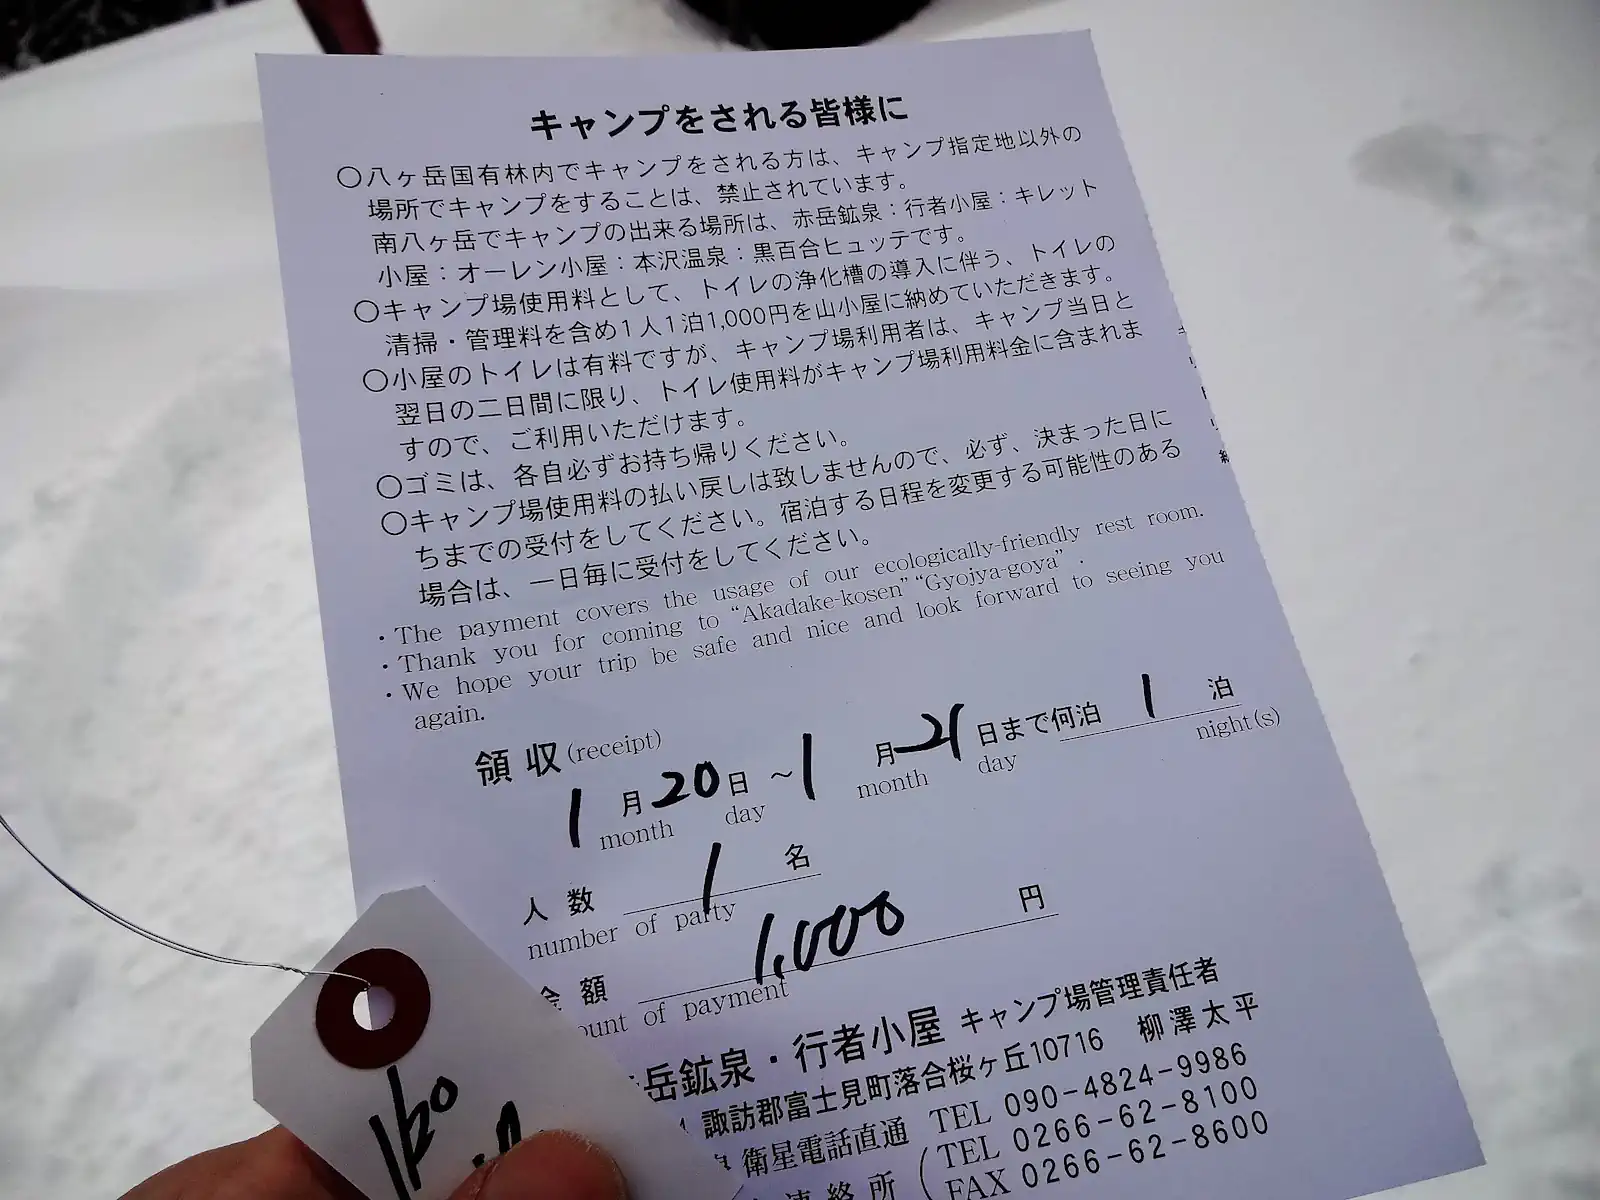 キャンプをされる皆様に
〇八ヶ岳国有林内でキャンプをされる方は、キャンプ指定地以外の
場所でキャンプをすることは、禁止されています。
南八ヶ岳でキャンプの出来る場所は、赤岳鉱泉：行者小屋：キレット
小屋：オーレン小屋：本沢温泉：黒百合ヒュッテです。
〇キャンプ場使用料として、トイレの浄化槽の導入に伴う、トイレの
清掃・管理料を含め1人1泊1,000円を山小屋に納めていただきます。
〇小屋のトイレは有料ですが、キャンプ場利用者は、キャンプ当日と
翌日の二日間に限り、トイレ使用料がキャンプ場利用料金に含まれま
すので、ご利用いただけます。
〇ゴミは、各自必ずお持ち帰りください。
〇キャンプ場使用料の払い戻しは致しませんので、必ず、決まった日に
ちまでの受付をしてください。宿泊する日程を変更する可能性のある
場合は、一日毎に受付をしてください。
・The payment covers the usage of our ecologically-friendly rest room.
・Thank you for coming to “Akadake-kosen” “Gyojya-goya”.
・We hope your trip be safe and nice and look forward to seeing you
again.
領収(receipt)
1月20日～1月21日まで何泊 1 泊
month day month day night(s)
人数 1 名
number of party
金額 1,000 円
ount of payment
岳鉱泉・行者小屋 キャンプ場管理責任者
諏訪郡富士見町落合桜ヶ丘10716 柳澤太平
衛星電話直通 TEL 090-4824-9986
連絡所 (TEL 0266-62-8100
FAX 0266-62-8600